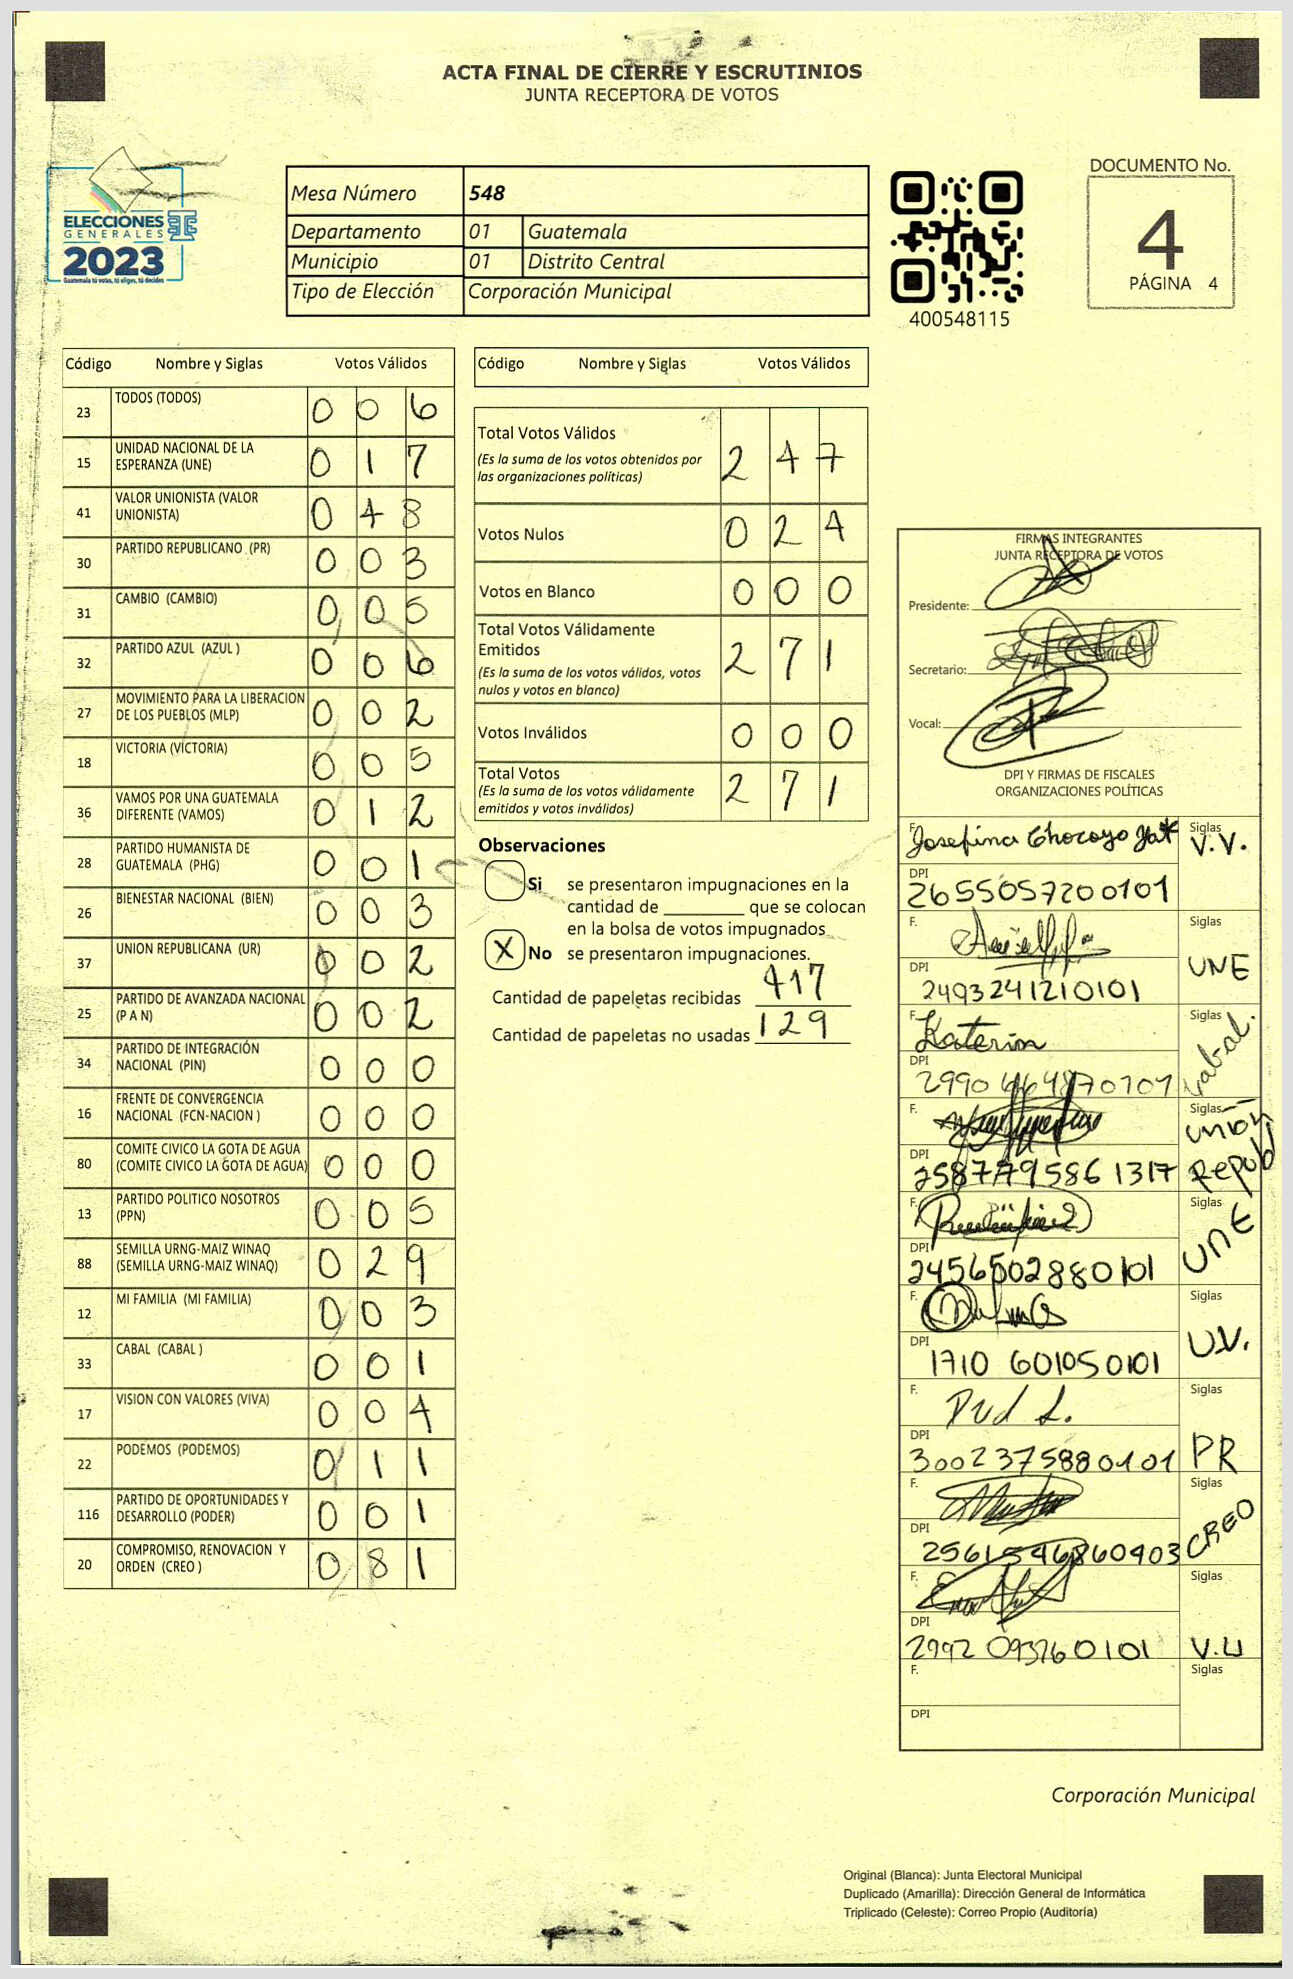 ACTA FINAL DE CIERRE Y ESCRUTINIOS
JUNTA RECEPTORA DE VOTOS
ELECCIONES
GENERALES
2023
Guatemala tú votas, tú eliges, tú decides
Mesa Número 548
Departamento 01 Guatemala
Municipio 01 Distrito Central
Tipo de Elección Corporación Municipal
400548115
DOCUMENTO No.
4
PÁGINA 4
Código Nombre y Siglas Votos Válidos
23 TODOS (TODOS) 0 0 6
15 UNIDAD NACIONAL DE LA ESPERANZA (UNE) 0 1 7
41 VALOR UNIONISTA (VALOR UNIONISTA) 0 4 8
30 PARTIDO REPUBLICANO (PR) 0 0 3
31 CAMBIO (CAMBIO) 0 0 5
32 PARTIDO AZUL (AZUL ) 0 0 6
27 MOVIMIENTO PARA LA LIBERACION DE LOS PUEBLOS (MLP) 0 0 2
18 VICTORIA (VICTORIA) 0 0 5
36 VAMOS POR UNA GUATEMALA DIFERENTE (VAMOS) 0 1 2
28 PARTIDO HUMANISTA DE GUATEMALA (PHG) 0 0 1
26 BIENESTAR NACIONAL (BIEN) 0 0 3
37 UNION REPUBLICANA (UR) 0 0 2
25 PARTIDO DE AVANZADA NACIONAL (P A N) 0 0 2
34 PARTIDO DE INTEGRACIÓN NACIONAL (PIN) 0 0 0
16 FRENTE DE CONVERGENCIA NACIONAL (FCN-NACION ) 0 0 0
80 COMITE CIVICO LA GOTA DE AGUA (COMITE CIVICO LA GOTA DE AGUA) 0 0 0
13 PARTIDO POLITICO NOSOTROS (PPN) 0 0 5
88 SEMILLA URNG-MAIZ WINAQ (SEMILLA URNG-MAIZ WINAQ) 0 2 9
12 MI FAMILIA (MI FAMILIA) 0 0 3
33 CABAL (CABAL ) 0 0 1
17 VISION CON VALORES (VIVA) 0 0 4
22 PODEMOS (PODEMOS) 0 1 1
116 PARTIDO DE OPORTUNIDADES Y DESARROLLO (PODER) 0 0 1
20 COMPROMISO, RENOVACION Y ORDEN (CREO ) 0 8 1
Código Nombre y Siglas Votos Válidos
Total Votos Válidos 2 4 7
(Es la suma de los votos obtenidos por
las organizaciones políticas)
Votos Nulos 0 2 4
Votos en Blanco 0 0 0
Total Votos Válidamente
Emitidos 2 7 1
(Es la suma de los votos válidos, votos
nulos y votos en blanco)
Votos Inválidos 0 0 0
Total Votos 2 7 1
(Es la suma de los votos válidamente
emitidos y votos inválidos)
Observaciones
Si se presentaron impugnaciones en la
cantidad de ________ que se colocan
en la bolsa de votos impugnados
X No se presentaron impugnaciones.
Cantidad de papeletas recibidas 417
Cantidad de papeletas no usadas 129
FIRMAS INTEGRANTES
JUNTA RECEPTORA DE VOTOS
Presidente:
Secretario:
Vocal:
DPI Y FIRMAS DE FISCALES
ORGANIZACIONES POLÍTICAS
F. Josefina Chocoyo Siglas V.V.
DPI 2655057200101
F. Siglas UNE
DPI 2493241210101
F. Katerin Siglas
DPI
F. Siglas Unión Republ
DPI
F. Siglas UNE
DPI 2456502880101
F. Siglas U.V.
DPI 1710 601050101
F. Siglas PR
DPI 3002375880101
F. Siglas CREO
DPI
F. Siglas V.U
DPI
F. Siglas
DPI
Corporación Municipal
Original (Blanca): Junta Electoral Municipal
Duplicado (Amarilla): Dirección General de Informática
Triplicado (Celeste): Correo Propio (Auditoría)